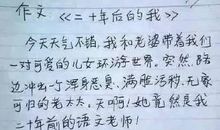 作文 《二十年后的我》
今天天气不错，我和老婆带着我们
一对可爱的儿女环游世界。突然，路
边冲出一个浑身恶臭、满脸污秽、无家
可归的老太太，天啊！她竟然是我
二十年前的语文老师！